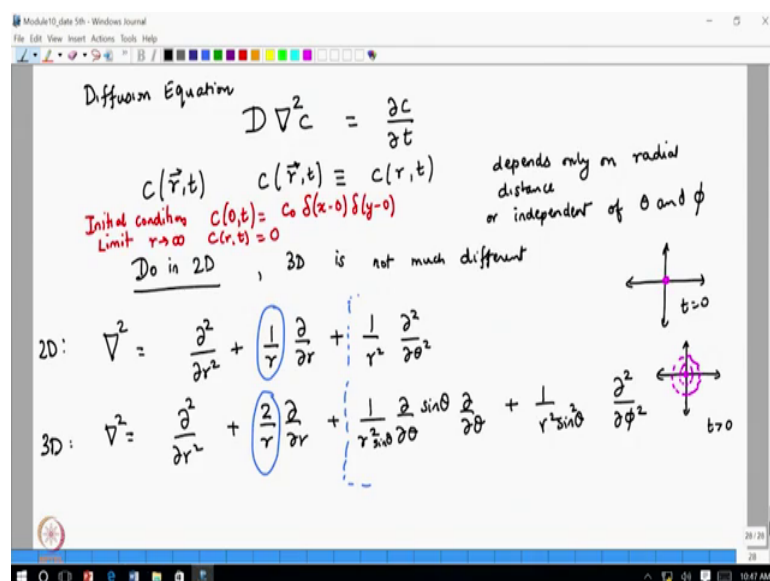 Module10_date 5th - Windows Journal
File Edit View Insert Actions Tools Help
Diffusion Equation
D ∇²c = ∂c/∂t
c(r⃗,t)    c(r⃗,t) ≡ c(r,t)
depends only on radial
distance
or independent of θ and ϕ
Initial condition c(0,t) = c₀ δ(x-0) δ(y-0)
Limit r→∞ c(r,t) = 0
Do in 2D , 3D is not much different
t=0
2D: ∇² = ∂²/∂r² + 1/r ∂/∂r + 1/r² ∂²/∂θ²
3D: ∇² = ∂²/∂r² + 2/r ∂/∂r + 1/r² sinθ ∂/∂θ sinθ ∂/∂θ + 1/r² sin²θ ∂²/∂ϕ²
t>0
28 / 28
28
10:47 AM